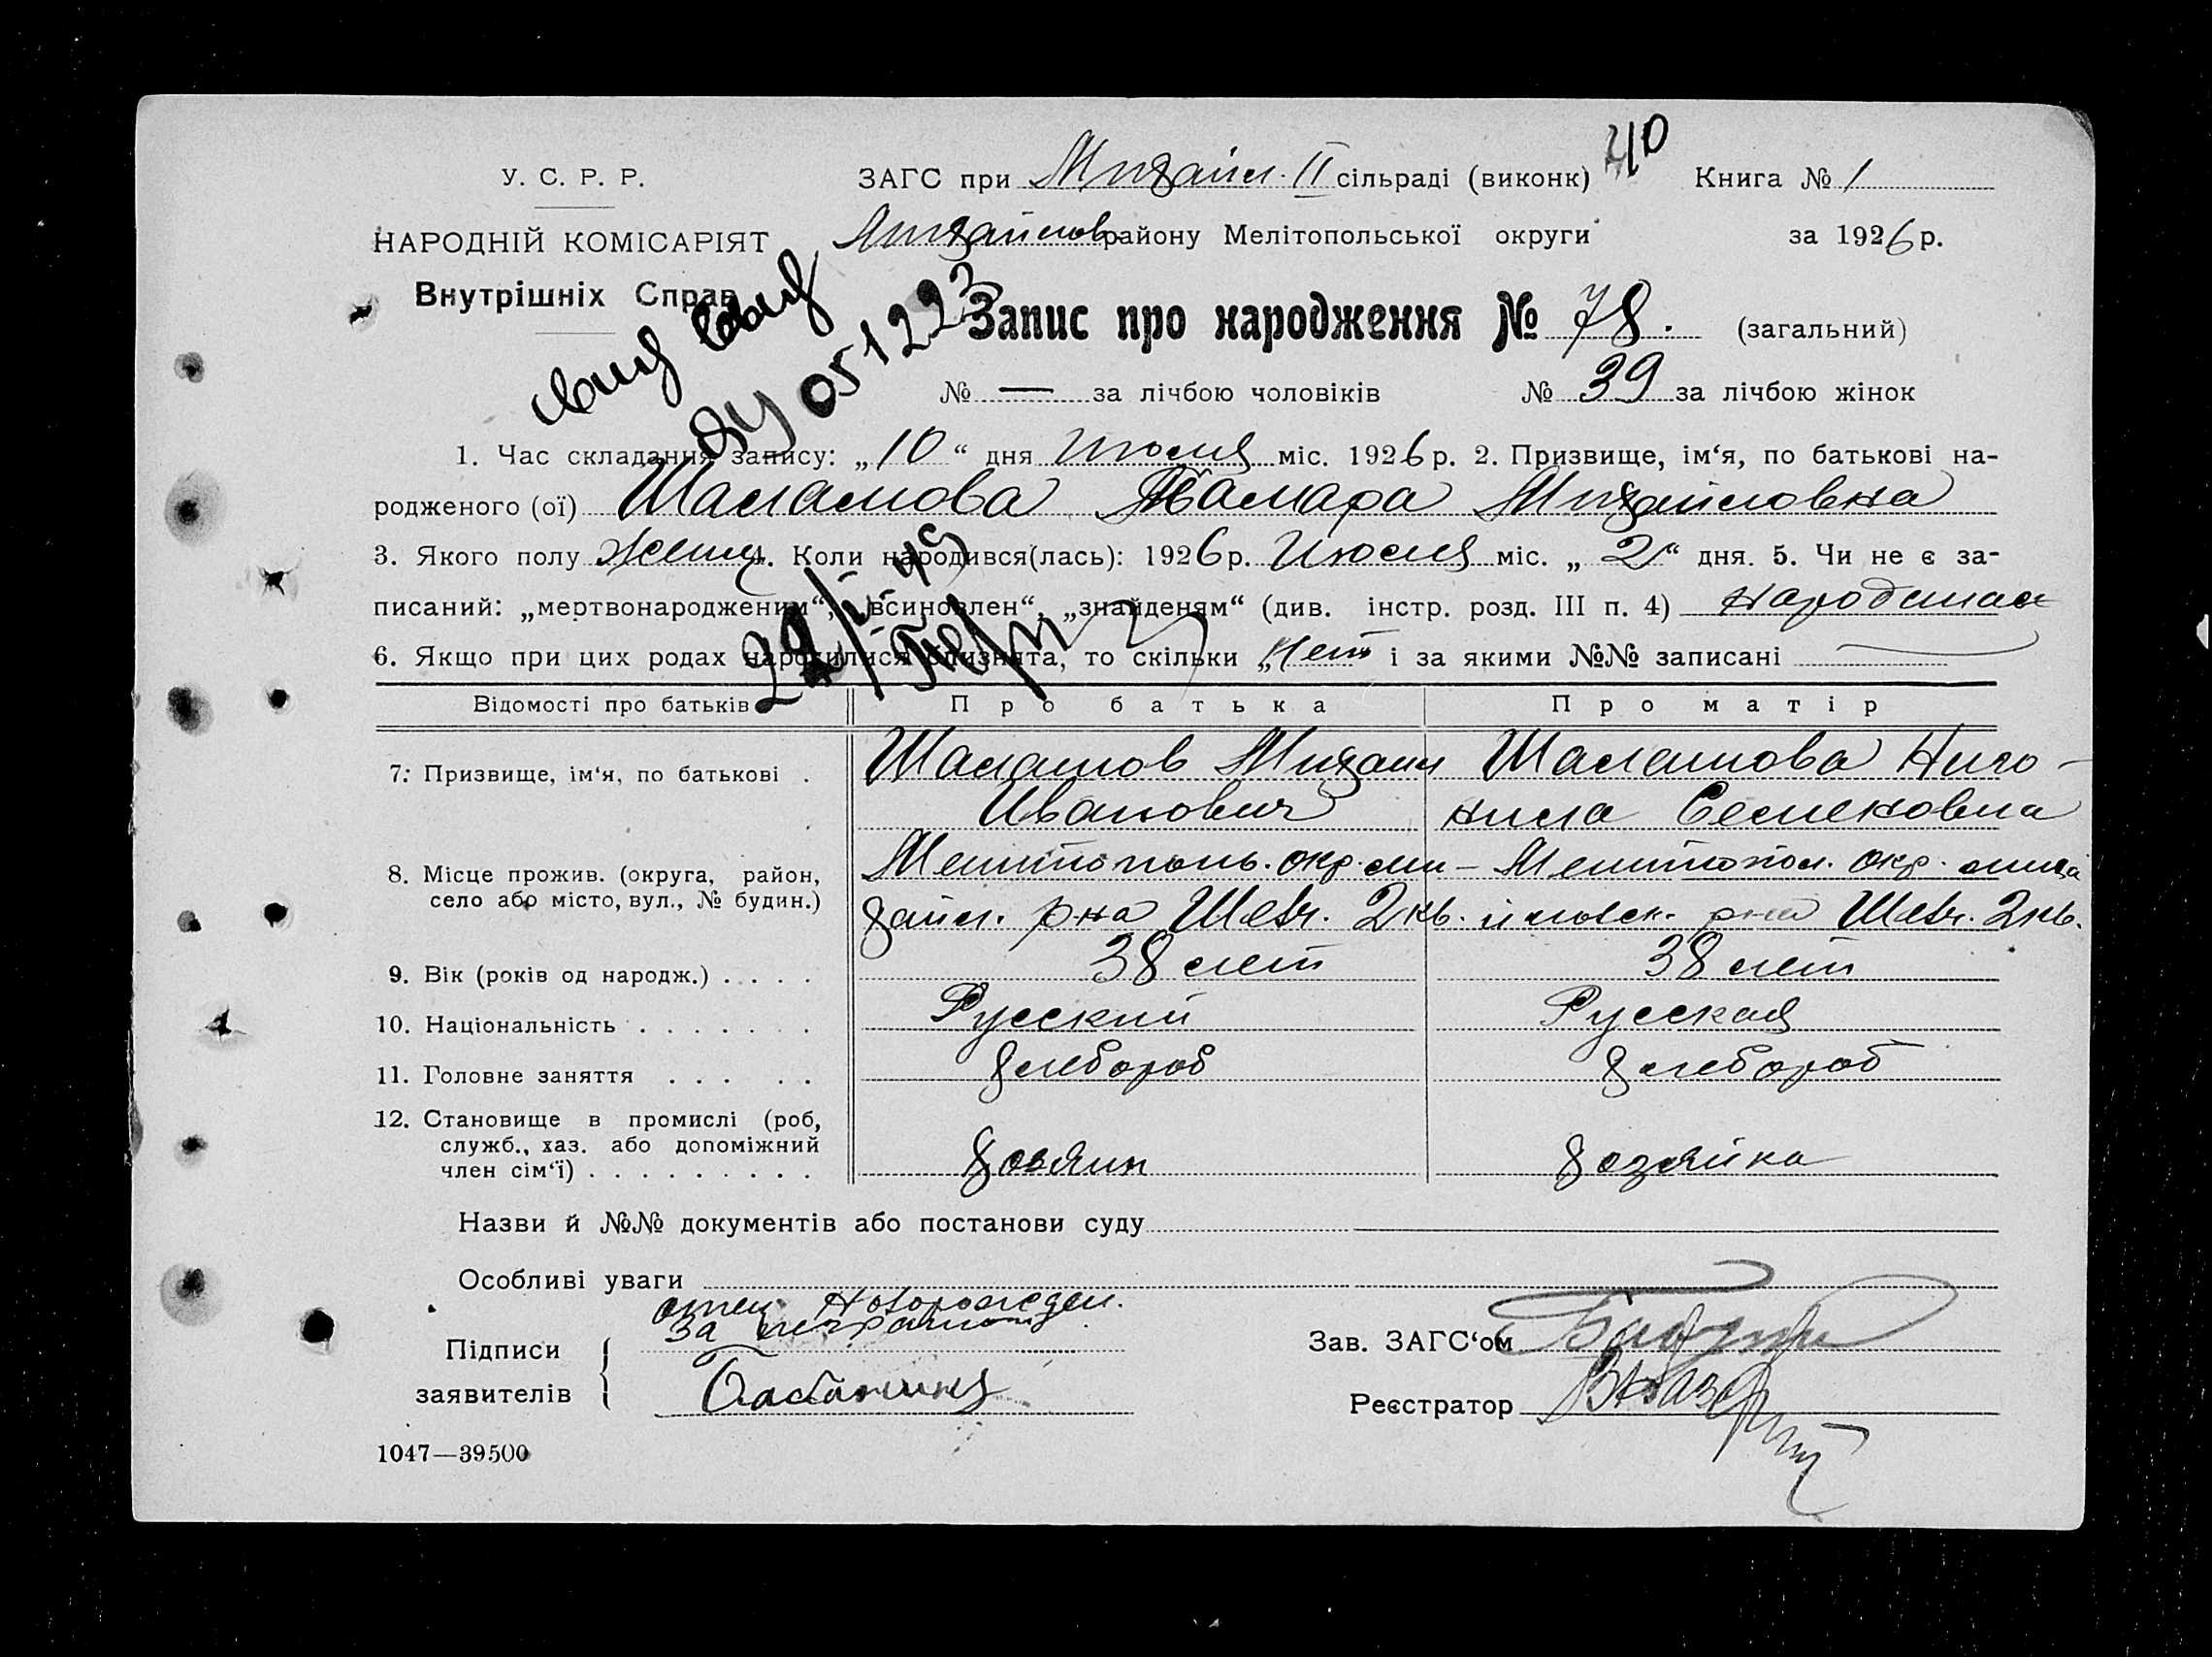 У. С. Р. Р.
ЗАГС при Михайл. II сільраді (виконк)
Книга № 1
НАРОДНІЙ КОМІСАРІЯТ
Внутрішніх Справ
Михайлов. району Мелітопольської округи
за 1926 р.
Запис про народження № 78. (загальний)
№ — за лічбою чоловіків № 39 за лічбою жінок
выд свид
051223
1. Час складання запису: „10“ дня Июля міс. 1926 р. 2. Призвище, ім‘я, по батькові на-
родженого (ої) Шаламова Тамара Михайловна
3. Якого полу женщ. 4. Коли народився(лась): 1926 р. Июля міс. „2“ дня. 5. Чи не є за-
писаний: „мертвонародженим“, „всиновлен“, „знайденям“ (див. інстр. розд. III п. 4)
6. Якщо при цих родах народилися близнята, то скільки „Нет“ і за якими №№ записані
Відомості про батьків
Про батька
Про матір
7. Призвище, ім‘я, по батькові .
Шаламов Михаил
Иванович
Шаламова
8. Місце прожив. (округа, район,
село або місто, вул., № будин.)
Мелитополь. окр. Ми-
хайл. р-на 2 кв.
Мелитопол. окр. Миха
йловск. р-на 2 кв.
9. Вік (років од народж.) . . . .
38 лет
38 лет
10. Національність . . . . . . .
Русский
Русская
11. Головне заняття . . . . .
Хлебороб
Хлебороб
12. Становище в промислі (роб,
служб., хаз. або допоміжний
член сім‘ї) . . . . . . . . .
Хозяин
Хозяйка
Назви й №№ документів або постанови суду
Особливі уваги
отец Новорожден.
за неграмотн.
Підписи
заявителів
Зав. ЗАГС‘ом
Реєстратор
1047—39500